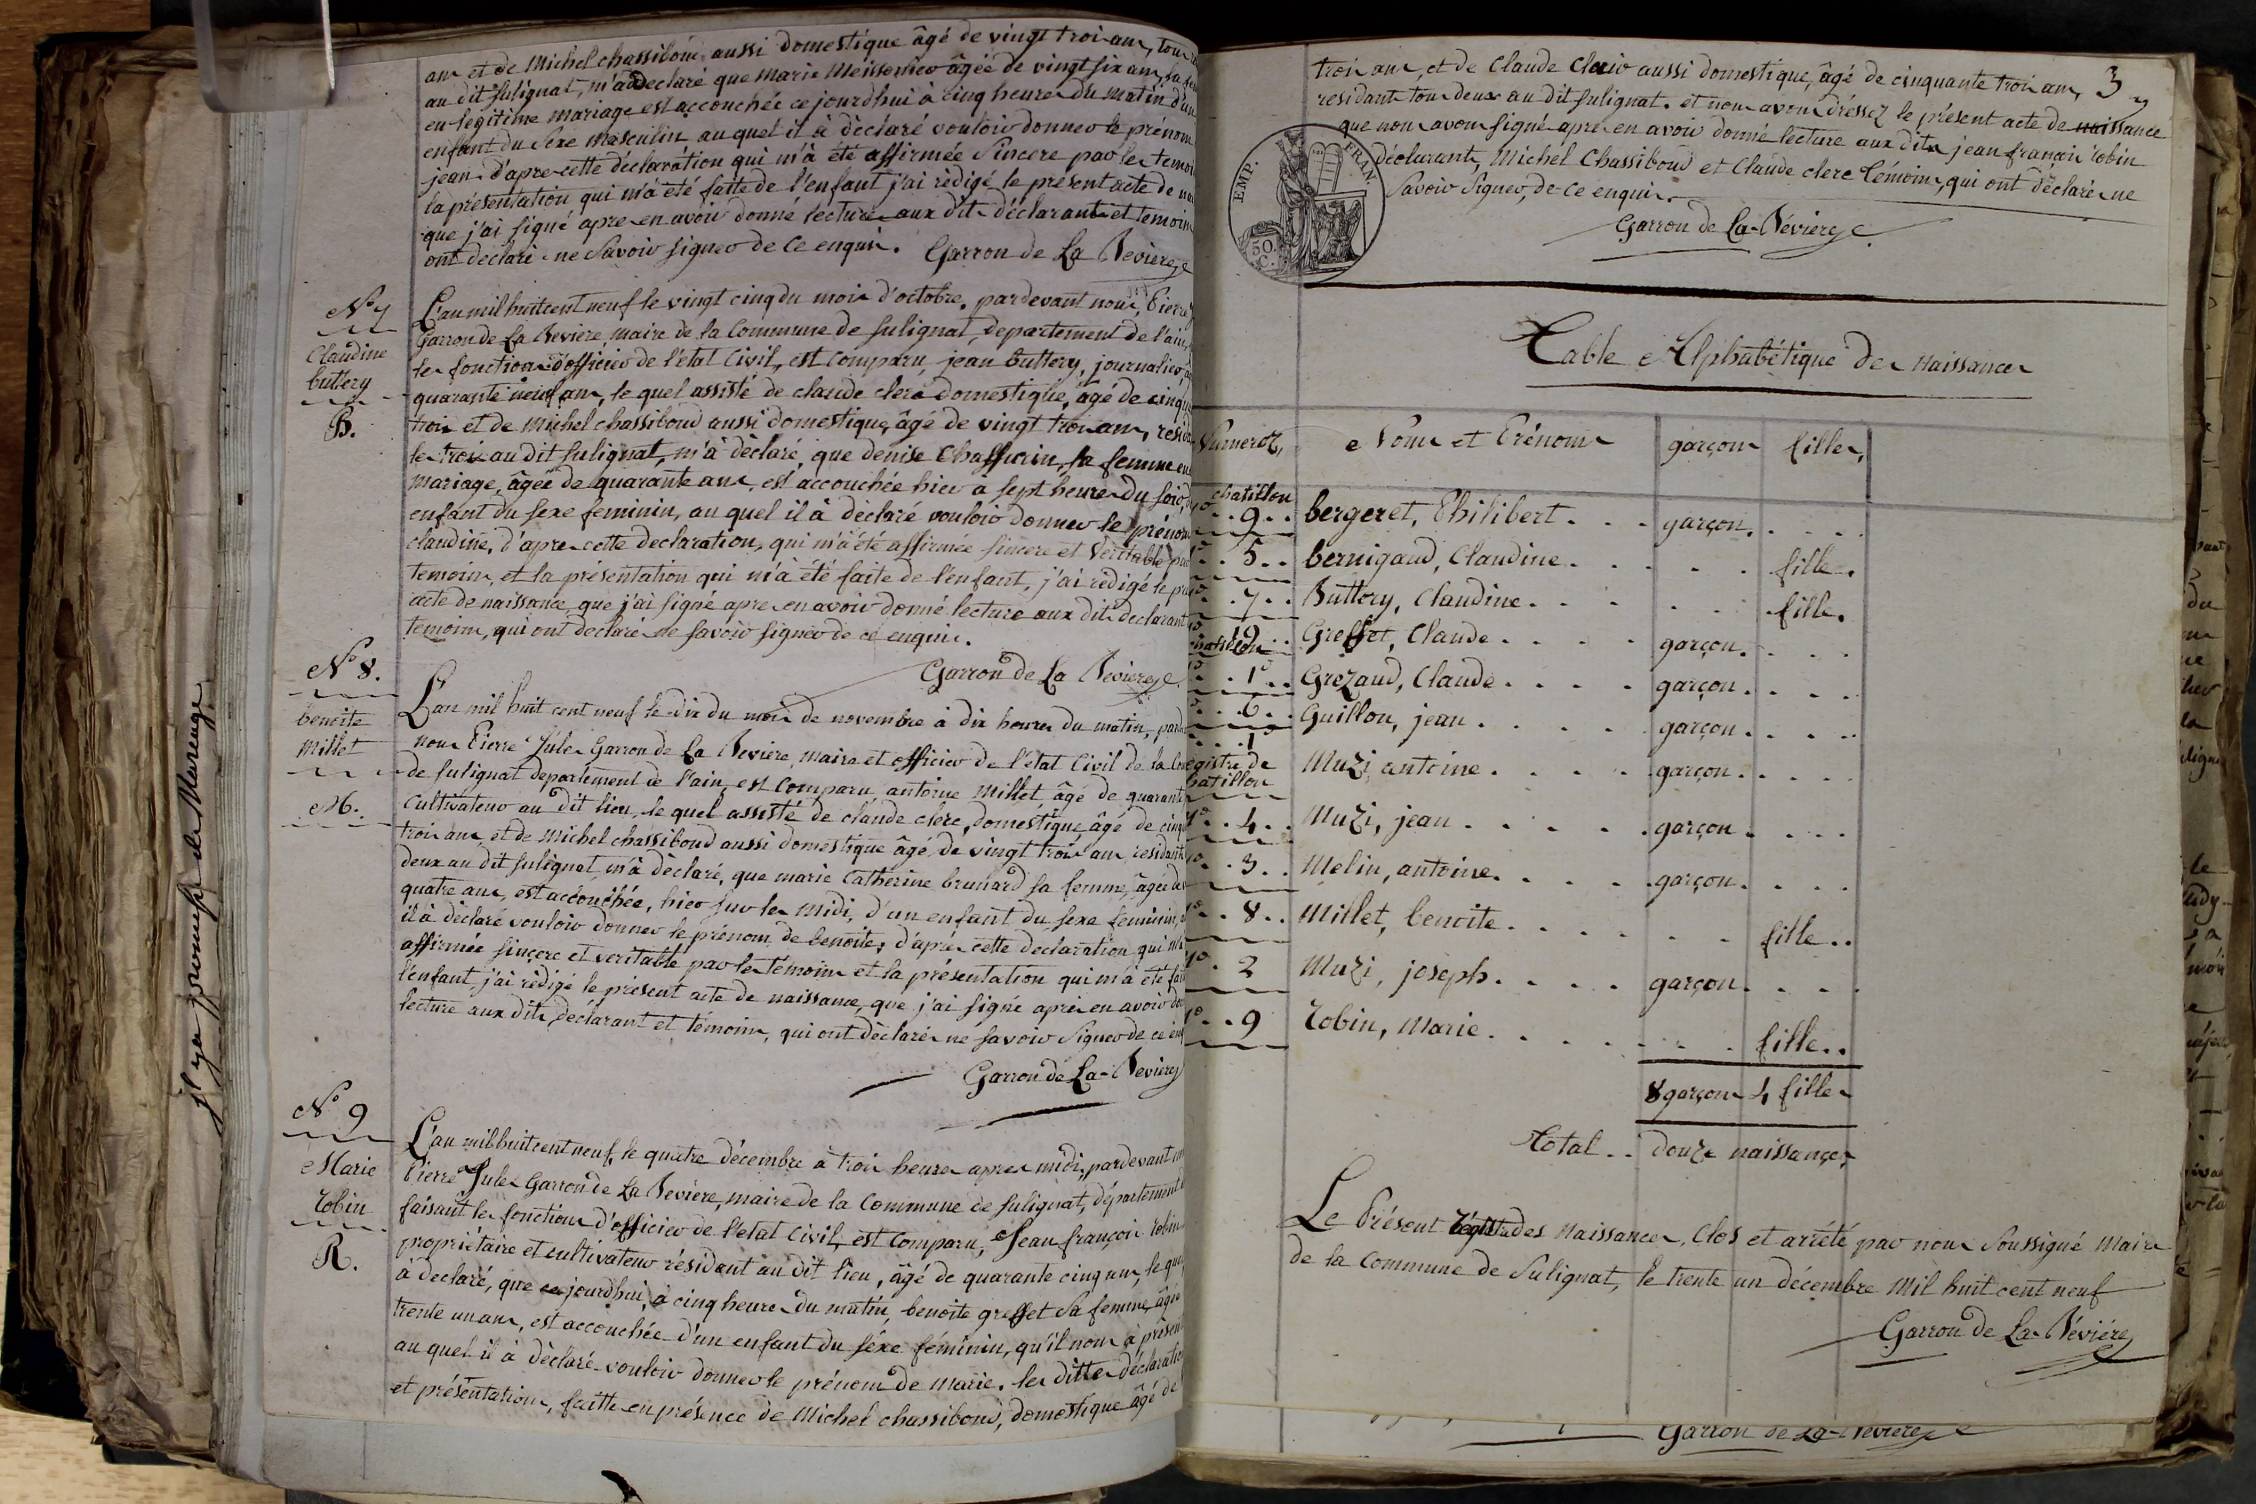 an et de Michel chassiboud aussi domestique âgé de vingt trois ans, tous
au dit Sulignat, m'a declaré que Marie Meissonier âgée de vingt six ans, sa
en legitime mariage est accouchée ce jourdhui à cinq heures du matin d'un
enfant du sexe masculin au quel il à dèclaré vouloir donner le prénom
jean d'apres cette déclaration qui m'à été affirmée sincere par les temoi
la présentation qui m'a été faite de l'enfant j'ai rédigé le présent acte de na
que j'ai signé apres en avoir donné lecture aux dits déclarants et temoins
ont déclaré ne savoir signer de ce enquis. Garron de La Bevière
N° 7
Claudine
buttery
B.
L'an mil huit cent neuf le vingt cinq du mois d'octobre, pardevant nous, Pierre
Garron de La Bevière, maire de la Commune de Sulignat, departement de l'ain,
les fonctions d'officier de l'état Civil, est comparu, jean Buttery, journalier,
quarante neuf ans, le quel assisté de claude clere domestique, âgé de cinqu
trois et de Michel chassiboud aussi domestique âgé de vingt trois ans, resid
les trois au dit Sulignat, m'à dèclaré, que denise Chaffurin, sa femme en
mariage, âgée de quarante ans, est accouchée hier à sept heures du soir,
enfant du sexe feminin, au quel il à dèclaré vouloir donner le prénom
claudine, d'apres cette declaration, qui m'à été affirmée sincere et Veritable par
temoins, et la présentation qui m'à été faite de l'enfant, j'ai rédigé le pré
acte de naissance, que j'ai signé apres en avoir donné lecture aux dits declarant
temoins, qui ont declaré ne savoir signer de ce enquis.
Garron de La Bevière
N° 8.
benoite
Millet
M.
L'an mil huit cent neuf le dix du mois de novembre à dix heures du matin, pard
nous Pierre Jules Garron de La Bevière, maire et officier de l'état Civil de la Co
de Sulignat departement de l'ain, est comparu antoine Millet âgé de quarante
Cultivateur au dit lieu, le quel assisté de claude clere, domestique, âgé de cinqu
trois ans, et de Michel chassiboud aussi domestique âgé de vingt trois ans residant
deux au dit Sulignat, m'à dèclaré, que marie Catherine brunard sa femme, âgée de
quatre ans, est accouchée, hier sur les Midi, d'un enfant du sexe feminin,
il à dèclaré vouloir donner le prénom de benoite, d'apres cette declaration qui m'a
affirmée sincere et veritable par les témoins et la présentation qui m'a été fai
l'enfant j'ai rédigé le présent acte de naissance, que j'ai signé apres en avoir do
lecture aux dits déclarant et témoins, qui ont dèclaré ne savoir signer de ce en
Garron de La Bevière
N° 9
Marie
Robin
R.
L'an mil huit cent neuf, le quatre décembre à trois heures apres midi, pardevant
Pierre Jules Garron de La Bevière, maire de la Commune de Sulignat, département
faisant les fonctions d'officier de l'etat Civil, est comparu, Jean françois robin
propriètaire et cultivateur résidant au dit lieu, âgé de quarante cinq ans, le que
à declaré, que ce jourdhui, à cinq heures du matin, benoite greffet sa femme âgée
trente un ans, est accouchée d'un enfant du séxe féminin, qu'il nous à présen
au quel il à dèclaré vouloir donner le prénom de marie. les dittes déclaration
et présentation, faitte en présence de Michel chassiboud, domestique âgé de
j'l ya promesse de Mareuge
3
trois ans, et de Claude Clair aussi domestique, âgé de cinquante trois ans,
residants tous deux au dit Sulignat. et nous avons dréssez le présent acte de naissance
que nous avons signé apres en avoir donné lecture aux dits jean françois robin
déclarant, Michel Chassiboud et Claude clere témoins, qui ont dèclaré ne
savoir signer, de ce enquis.
EMP. FRAN
50. C.
Garron de La Bévière
Table Alphabétique des Naissances
Numeros, Noms et Prénoms garçons filles,
chatillon
9 bergeret, Philibert garçon
5 bernigaud, Claudine fille
7 Buttery, Claudine fille
10 Greffet, Claude garçon
chatillon
1 Grézaud, Claude garçon
6 Guillon, jean garçon
1
registre de Muzi, antoine garçon
chatillon
4 Muzi, jean garçon
3 Melin, antoine garçon
8 Millet, benoite fille
2 Muzi, joseph garçon
9 Robin, Marie fille
8 garçons 4 filles
Total douze naissances
Le Présent Régistre des Naissances, Clos et arrété par nous Soussigné Maire
de la Commune de Sulignat, le trente un décembre Mil huit cent neuf
Garron de La Bévière
Garron de La Bevière